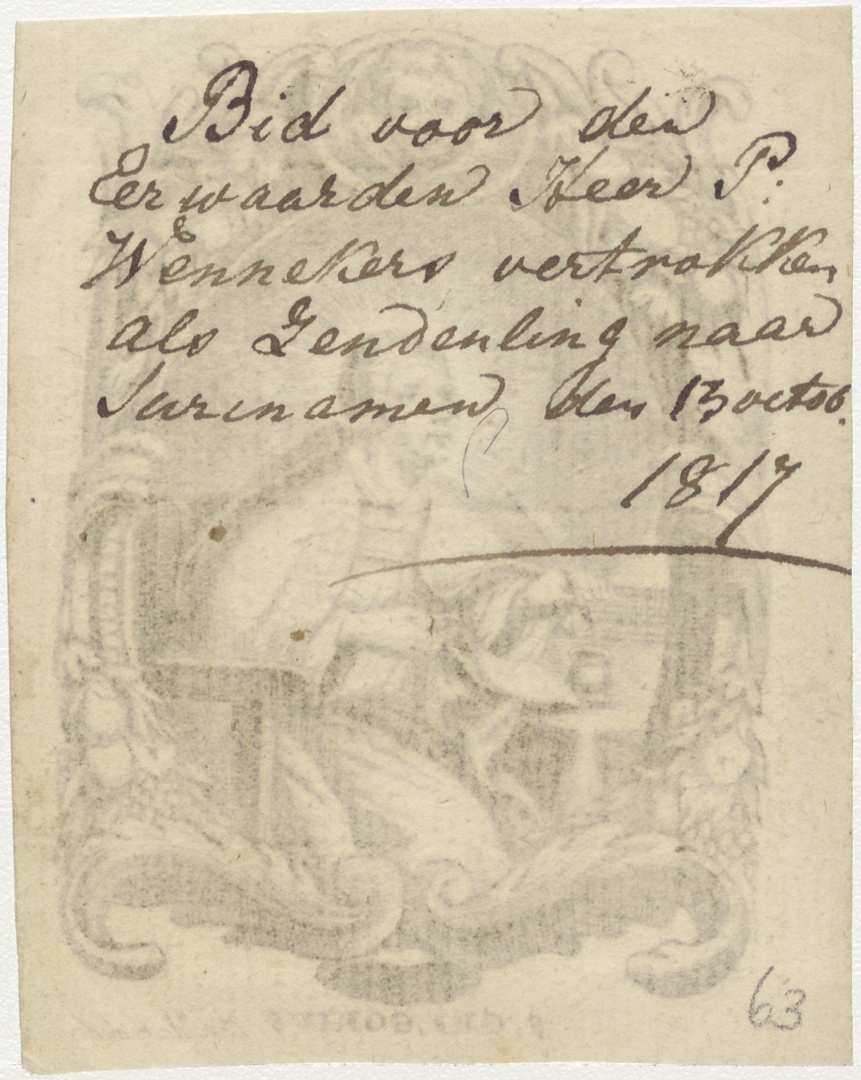 Bid voor den
Eerwaarden Heer P:
Wennekers vertrokken
als Zendenling naar
Surinamen den 13 octob.
1817
63